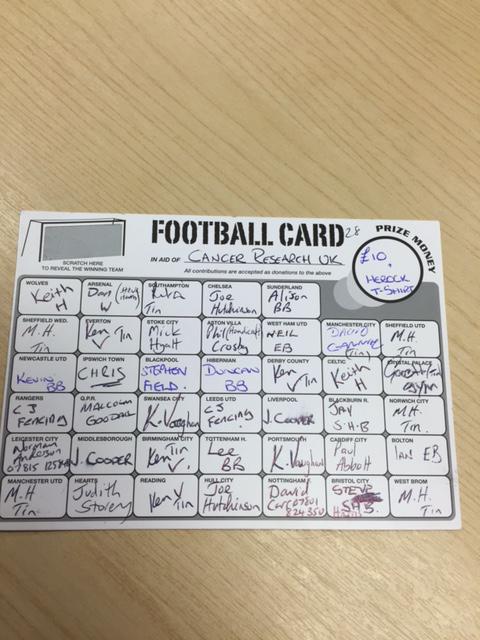 FOOTBALL CARD 28
PRIZE MONEY
IN AID OF CANCER RESEARCH UK
All contributions are accepted as donations to the above
SCRATCH HERE
TO REVEAL THE WINNING TEAM
£10,
HEROCK
T-SHIRT
WOLVES
Keith
H
ARSENAL
Dan
W
SOUTHAMPTON
Tin
CHELSEA
Joe
Hutchinson
SUNDERLAND
Alison
BB
SHEFFIELD WED.
M.H.
Tin
EVERTON
Ken Tin
STOKE CITY
Mick
Hyatt
ASTON VILLA
Phil
Crosby
WEST HAM UTD
NEIL
EB
MANCHESTER CITY
DAVID
Tin
SHEFFIELD UTD
M.H.
Tin
NEWCASTLE UTD
KEVIN
BB
IPSWICH TOWN
CHRIS
BLACKPOOL
STEPHEN
FIELD.
HIBERNIAN
DUNCAN
BB
DERBY COUNTY
Ken
Tin
CELTIC
Keith
H
CRYSTAL PALACE
RANGERS
CJ
FENCING
Q.P.R.
MALCOLM
GOODALL
SWANSEA CITY
K. Vaughan
LEEDS UTD
CJ
FENCING
LIVERPOOL
J. COOPER
BLACKBURN R.
JAY
S.H.B
NORWICH CITY
M.H.
Tin.
LEICESTER CITY
Norman
Anderson
07815
MIDDLESBOROUGH
J. COOPER
BIRMINGHAM CITY
Tin
Ken
TOTTENHAM H.
Lee
BB
PORTSMOUTH
K. Vaughan
CARDIFF CITY
Paul
Abbott
BOLTON
IAN EB
MANCHESTER UTD
M.H
Tin
HEARTS
Judith
Storey
READING
Ken Tin
HULL CITY
Joe
Hutchinson
NOTTINGHAM
David
07801
824350
BRISTOL CITY
STEVE
SHB.
WEST BROM
M.H.
Tin